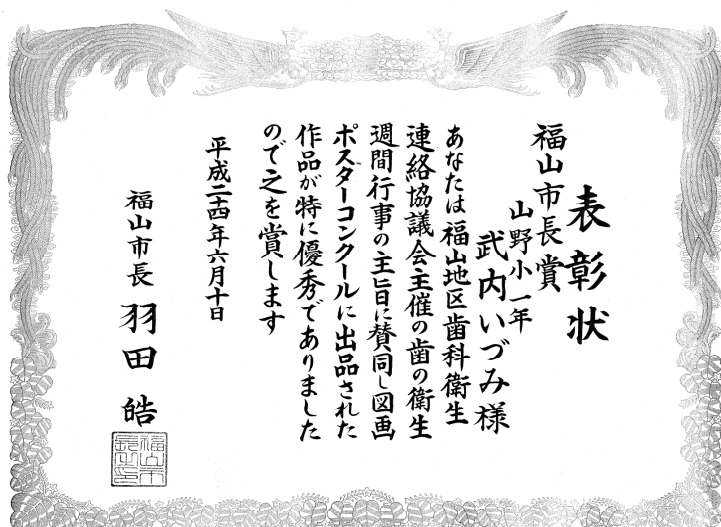 表彰状
福山市長賞
山野小一年
武内いづみ様
あなたは福山地区歯科衛生
連絡協議会主催の歯の衛生
週間行事の主旨に賛同し図画
ポスターコンクールに出品された
作品が特に優秀でありました
ので之を賞します
平成二十四年六月十日
福山市長 羽田皓
福山市長之印